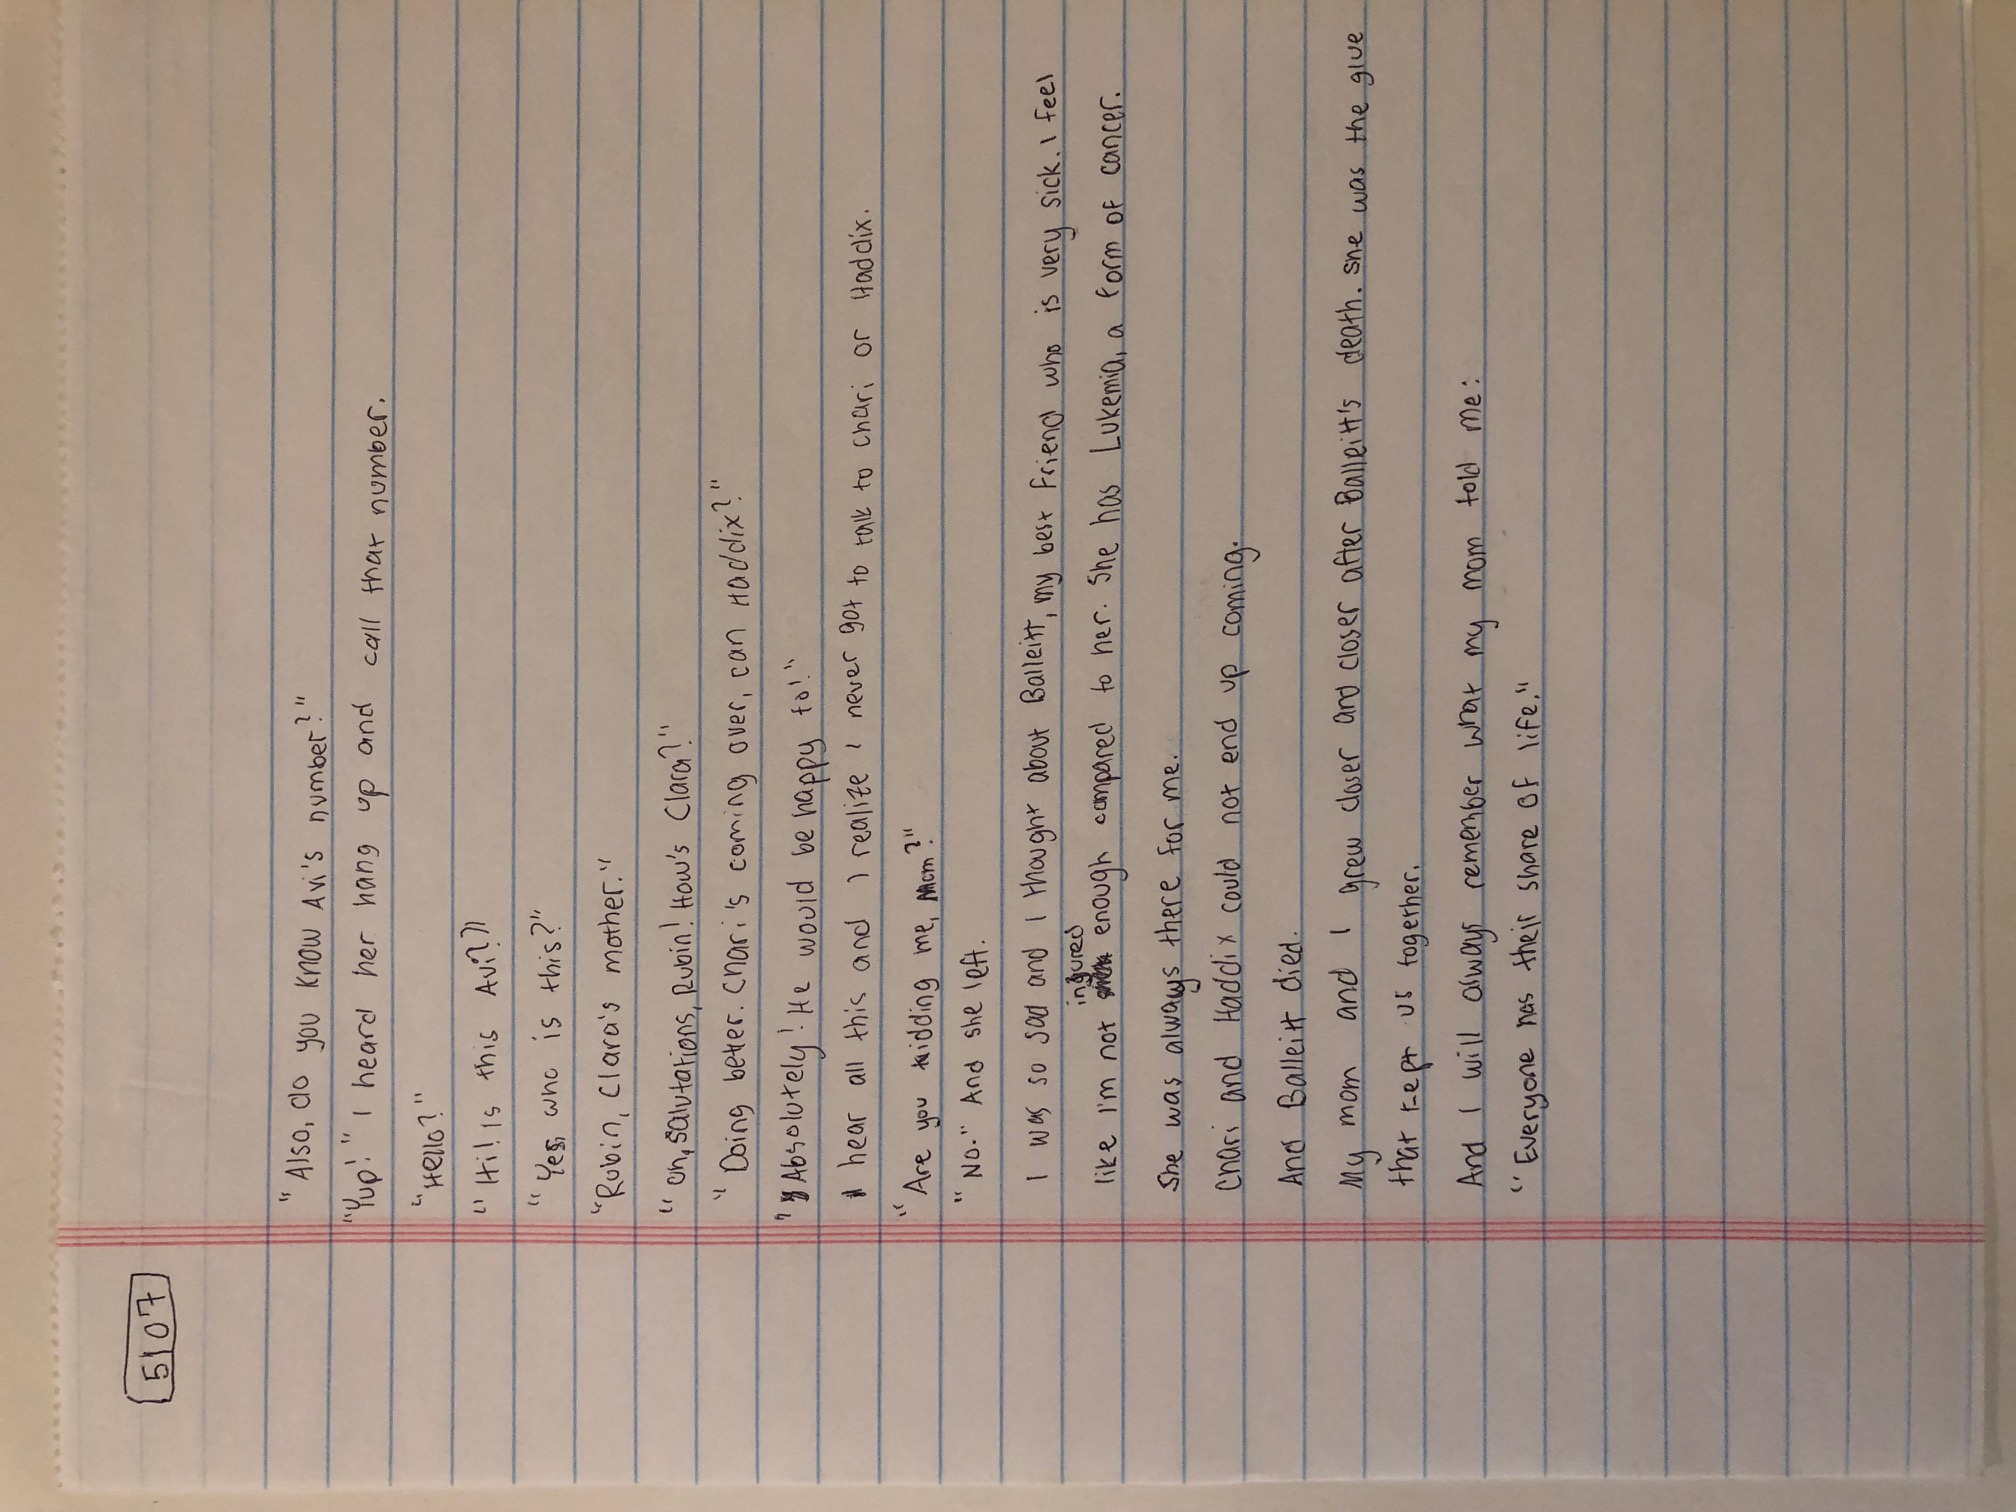 5107
"Also, do you know Avi's number?"
"Yup!" I heard her hang up and call that number.
"Hello?"
"Hi! Is this Avi?"
"Yes, who is this?"
"Rubin, Clara's mother."
"Oh, Salutations, Rubin! How's Clara?"
"Doing better. Chari's coming over, can Haddix?"
"Absolutely! He would be happy to!"
I hear all this and I realize I never got to talk to Chari or Haddix.
"Are you kidding me, Mom?"
"No." And she left.
I was so sad and I thought about Balleitt, my best friend who is very sick. I feel
ingured
like I'm not enough compared to her. She has Lukemia, a form of cancer.
She was always there for me.
Chari and Haddix could not end up coming.
And Balleitt died.
My mom and I grew closer and closer after Balleitt's death. She was the glue
that kept us together.
And I will always remember what my mom told me:
"Everyone has their share of life."